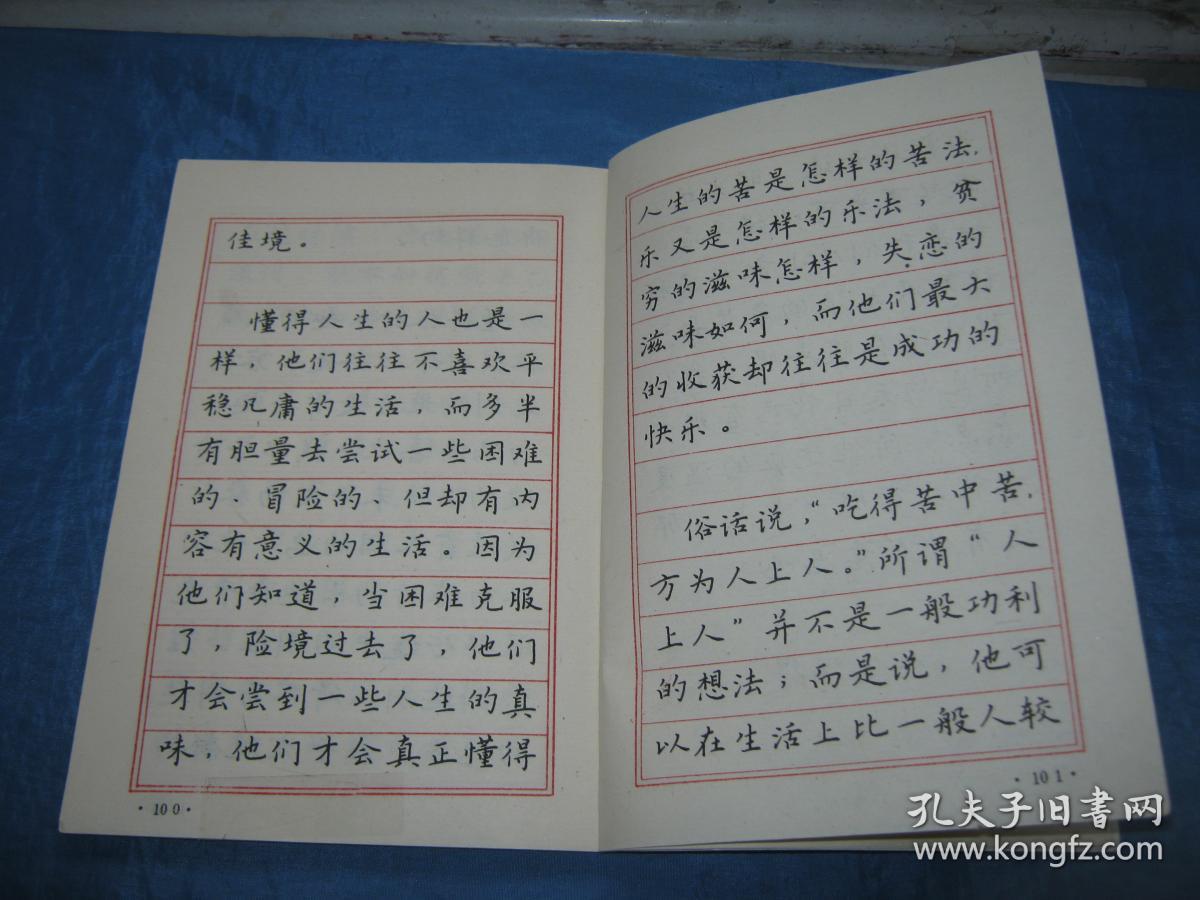 佳境。
懂得人生的人也是一
样，他们往往不喜欢平
稳凡庸的生活，而多半
有胆量去尝试一些困难
的、冒险的、但却有内
容有意义的生活。因为
他们知道，当困难克服
了，险境过去了，他们
才会尝到一些人生的真
味，他们才会真正懂得
·100·
人生的苦是怎样的苦法，
乐又是怎样的乐法，贫
穷的滋味怎样，失恋的
滋味如何，而他们最大
的收获却往往是成功的
快乐。
俗话说，“吃得苦中苦，
方为人上人。”所谓“人
上人”并不是一般功利
的想法；而是说，他可
以在生活上比一般人较
·101·
孔夫子旧书网
www.kongfz.com